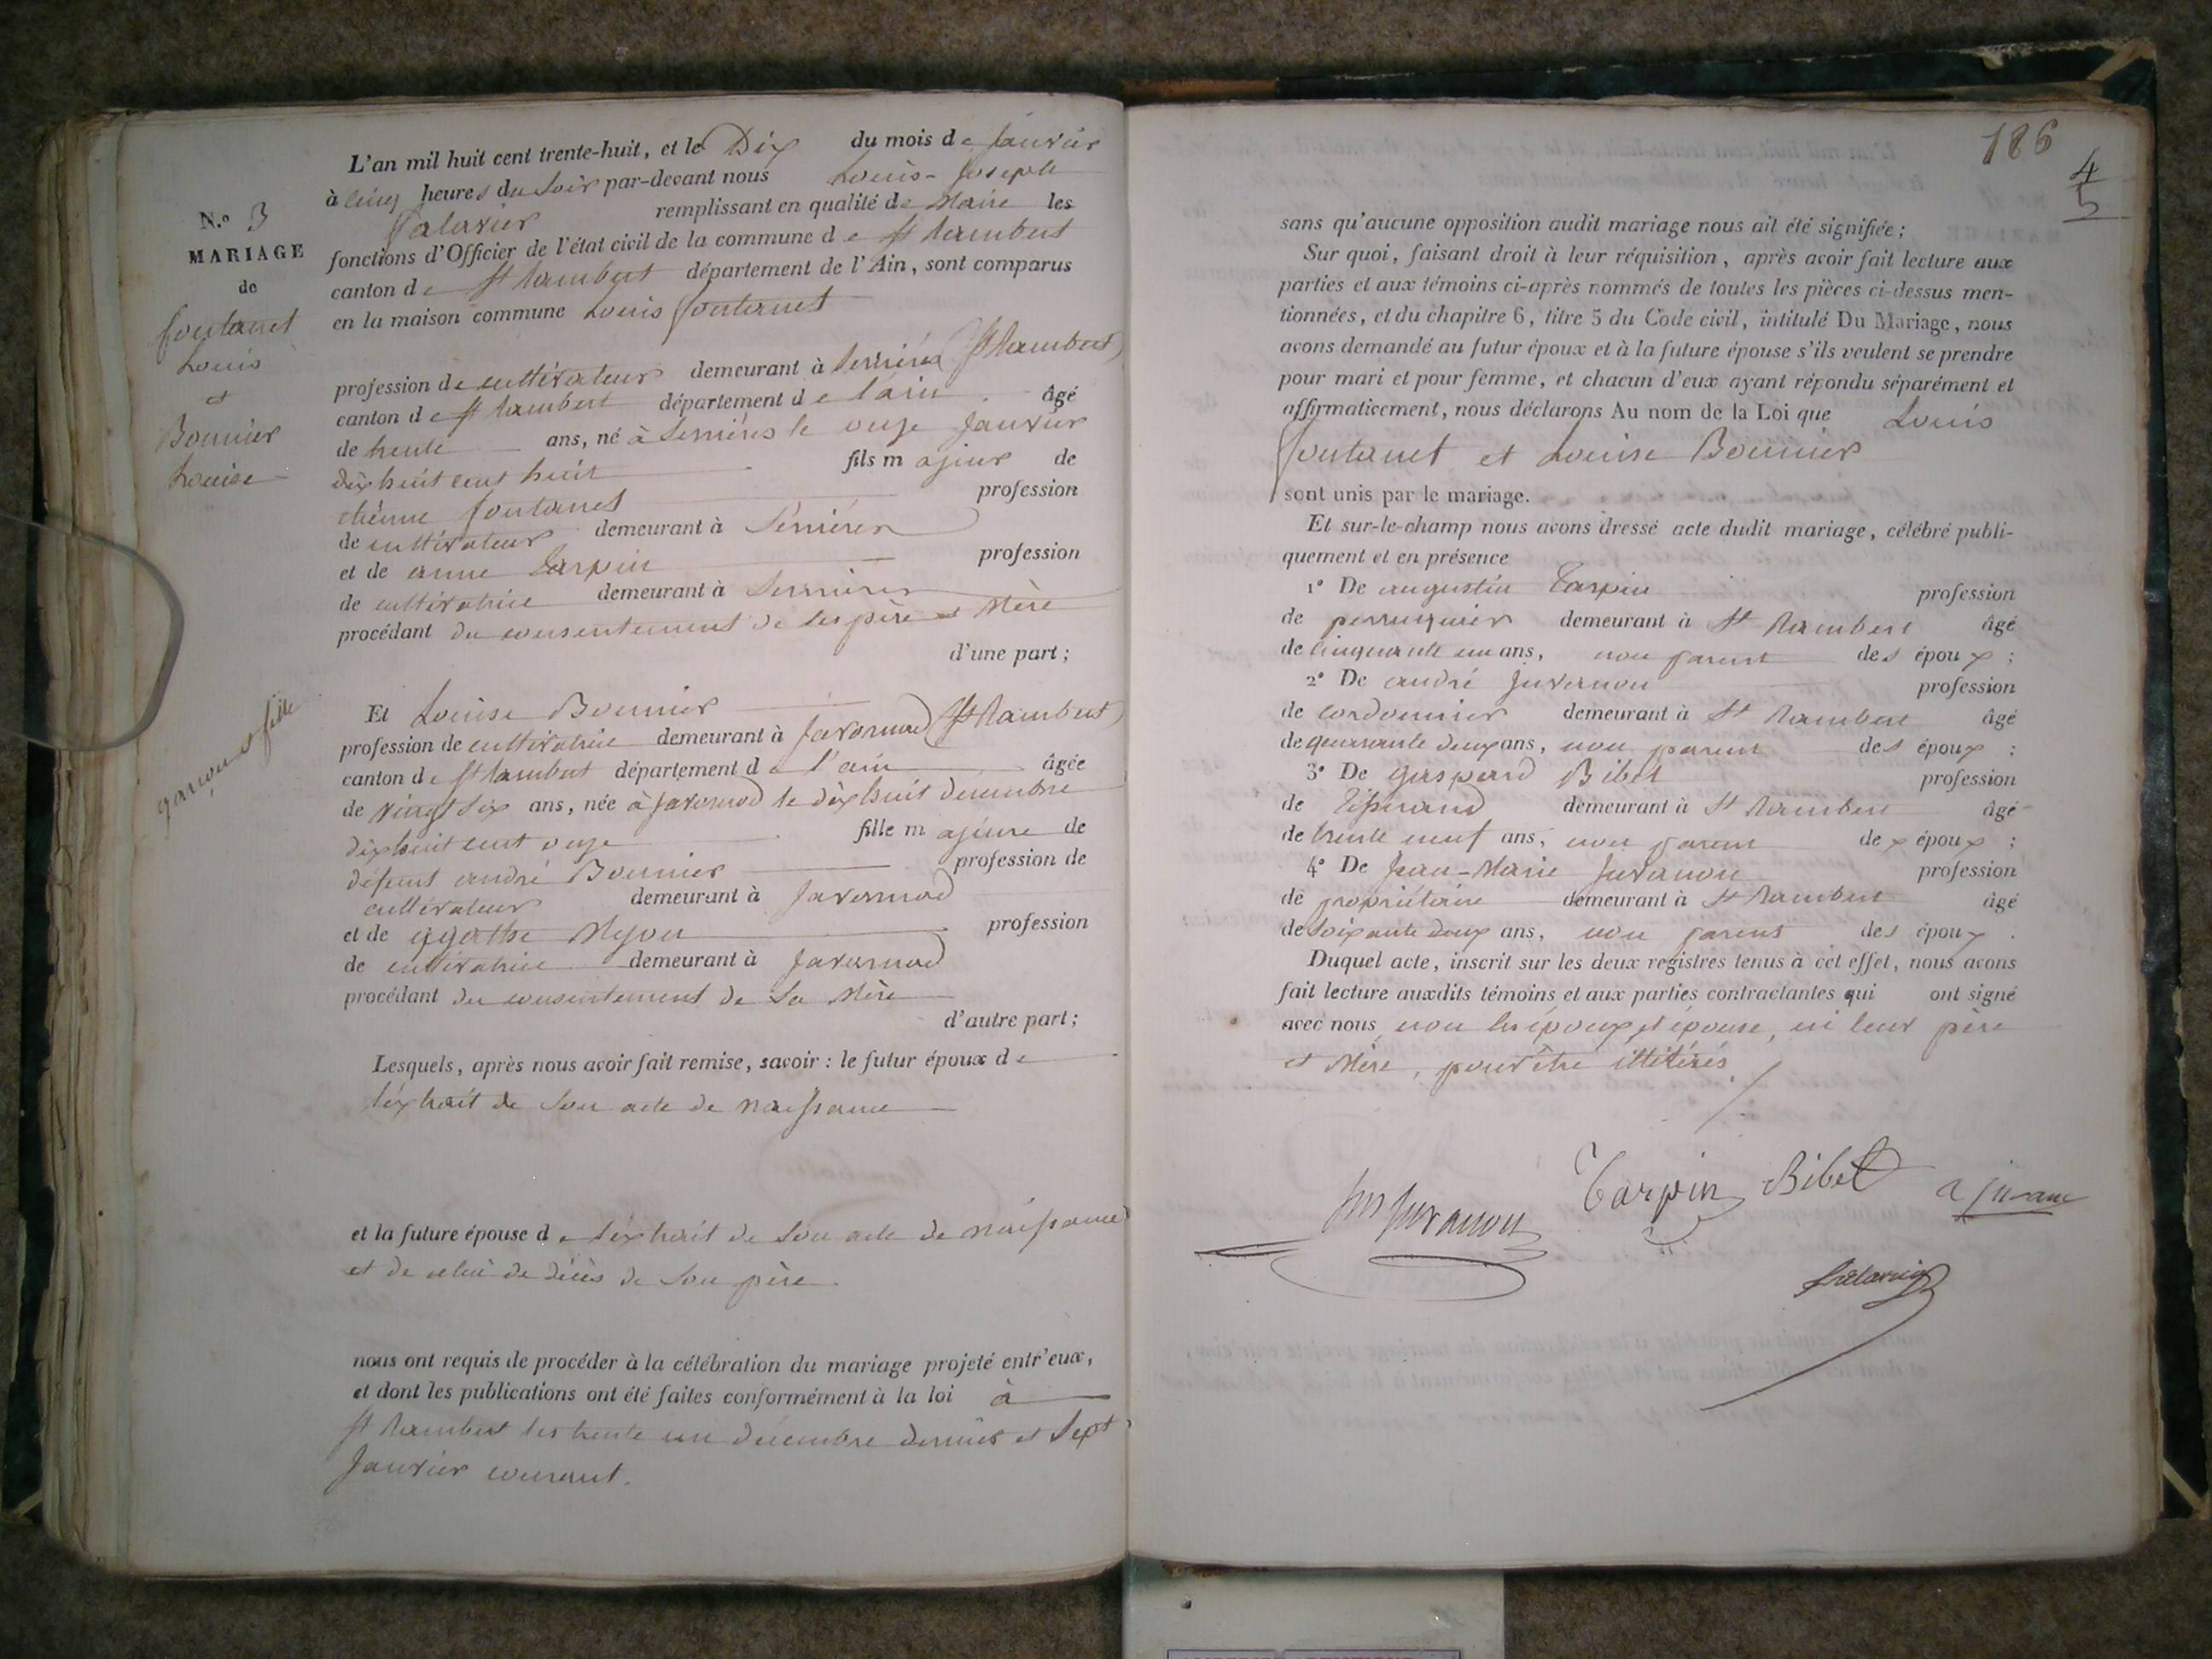 L'an mil huit cent trente-huit, et le Dix du mois de janvier
à cinq heures du soir par-devant nous Louis-Joseph
remplissant en qualité de Maire les
fonctions d'Officier de l'état civil de la commune de St Rambert
canton de St Rambert département de l'Ain, sont comparus
en la maison commune Louis fontanet
N.o 3
MARIAGE
de
fontanet
Louis
et
Bonnier
Louise
profession de cultivateur demeurant à Serrières (St Rambert)
canton de St Rambert département de l'ain âgé
de trente ans, né à Serrières le onze janvier
dix huit cent huit fils majeur de
etienne fontanet profession
de cultivateur demeurant à Serrières
et de anne Tarpin profession
de cultivatrice demeurant à Serrières
procédant du consentement de ses père et Mère
d'une part;
garçon et fille
Et Louise Bonnier
profession de cultivatrice demeurant à Javornod (St Rambert)
canton de St Rambert département de l'ain âgée
de vingt six ans, née à Javornod le dix huit décembre
dix huit cent onze fille majeure de
défunt andré Bonnier profession de
cultivateur demeurant à Javornod
et de agathe profession
de cultivatrice demeurant à Javornod
procédant du consentement de sa Mère
d'autre part;
Lesquels, après nous avoir fait remise, savoir : le futur époux de
l'éxtrait de son acte de naissance
et la future épouse de l'éxtrait de son acte de naissance
et de celui de décès de son père.
nous ont requis de procéder à la célébration du mariage projeté entr'eux,
et dont les publications ont été faites conformément à la loi à
St Rambert les trente un décembre dernier et sept
janvier courant.
186
4
5
sans qu'aucune opposition audit mariage nous ait été signifiée;
Sur quoi, faisant droit à leur réquisition, après avoir fait lecture aux
parties et aux témoins ci-après nommés de toutes les pièces ci-dessus men-
tionnées, et du chapitre 6, titre 5 du Code civil, intitulé Du Mariage, nous
avons demandé au futur époux et à la future épouse s'ils veulent se prendre
pour mari et pour femme, et chacun d'eux ayant répondu séparément et
affirmativement, nous déclarons Au nom de la Loi que Louis
fontanet et Louise Bonnier
sont unis par le mariage.
Et sur-le-champ nous avons dressé acte dudit mariage, célébré publi-
quement et en présence
1º De augustin Tarpin profession
de perruquier demeurant à St Rambert âgé
de cinquante un ans, non parent des époux ;
2º De andré Juvanon profession
de cordonnier demeurant à St Rambert âgé
de quarante deux ans, non parent des époux ;
3º De gaspard Bibet profession
de Tisserand demeurant à St Rambert âgé
de trente neuf ans, non parent des époux ;
4º De Jean-Marie Juvanon profession
de propriétaire demeurant à St Rambert âgé
de soixante deux ans, non parent des époux .
Duquel acte, inscrit sur les deux registres tenus à cet effet, nous avons
fait lecture auxdits témoins et aux parties contractantes qui ont signé
avec nous, non les époux et épouse, ni leur père
et Mère, pour être illitérés
Juvanon Tarpin Bibet